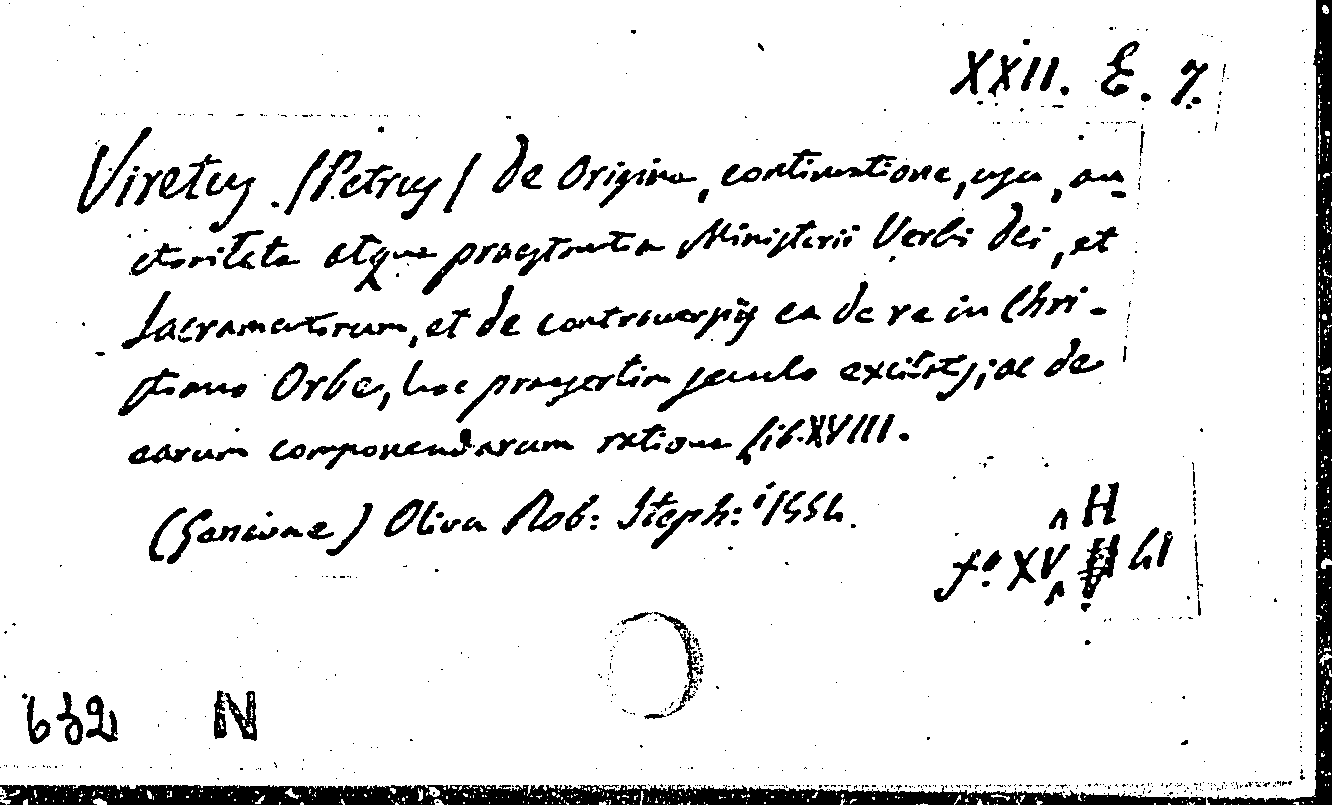 XXII. E. 7.
Viretus. /Petrus/ de Origine, continuatione, usu, au-
ctoritate atque praestantia Ministerii Verbi Dei, et
Sacramentorum, et de controversiis ea de re in Chri-
stiano Orbe, hoc praesertim seculo excitatis; ac de
earum componendarum ratione lib. XVIII.
(Genevae) Oliva Rob: Steph: 1554.
H
fº XV 41
632 N